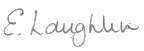 E. Laughlin